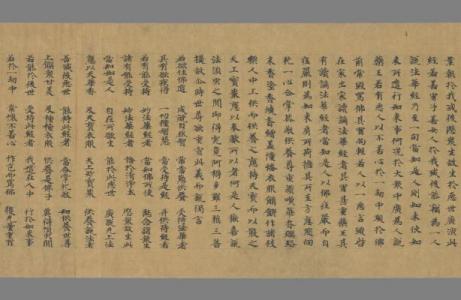 業報於我滅度後愍衆生故生於惡世廣演此
經若是善男子善女人我滅度後能竊為一人
說法華經乃至一句當知是人則如來使如
來所遣行如來事何況於大衆中廣為人說
藥王若有惡人以不善心於一劫中現於佛
前常毀罵佛其罪尚輕若人以一惡言毀呰
在家出家讀誦法華經者其罪甚重藥王其
有讀誦法華經者當知是人以佛莊嚴而自
莊嚴則為如來肩所荷擔其所至方應隨向
禮一心合掌恭敬供養尊重讚歎華香瓔珞
末香塗香燒香繒蓋幢幡衣服餚饌作諸伎
樂人中上供而供養之應持天寶而以散之
天上寶聚應以奉獻所以者何是人歡喜說
法須臾聞之即得究竟阿耨多羅三藐三菩
提故爾時世尊欲重宣此義而說偈言
若欲住佛道 成就自然智 常當勤供養 受持法華者
其有欲疾得 一切種智慧 當受持是經 并供養持者
若有能受持 妙法華經者 當知佛所使 愍念諸衆生
諸有能受持 妙法華經者 捨於清淨土 愍衆故生此
當知如是人 自在所欲生 能於此惡世 廣說无上法
應以天華香 及天寶衣服 天上妙寶聚 供養說法者
吾滅後惡世 能持是經者 當合掌禮敬 如供養世尊
上饌衆甘美 及種種衣服 供養是佛子 冀得須臾聞
若能於後世 受持是經者 我遣在人中 行於如來事
若於一劫中 常懷不善心 作色而罵佛 獲无量重罪